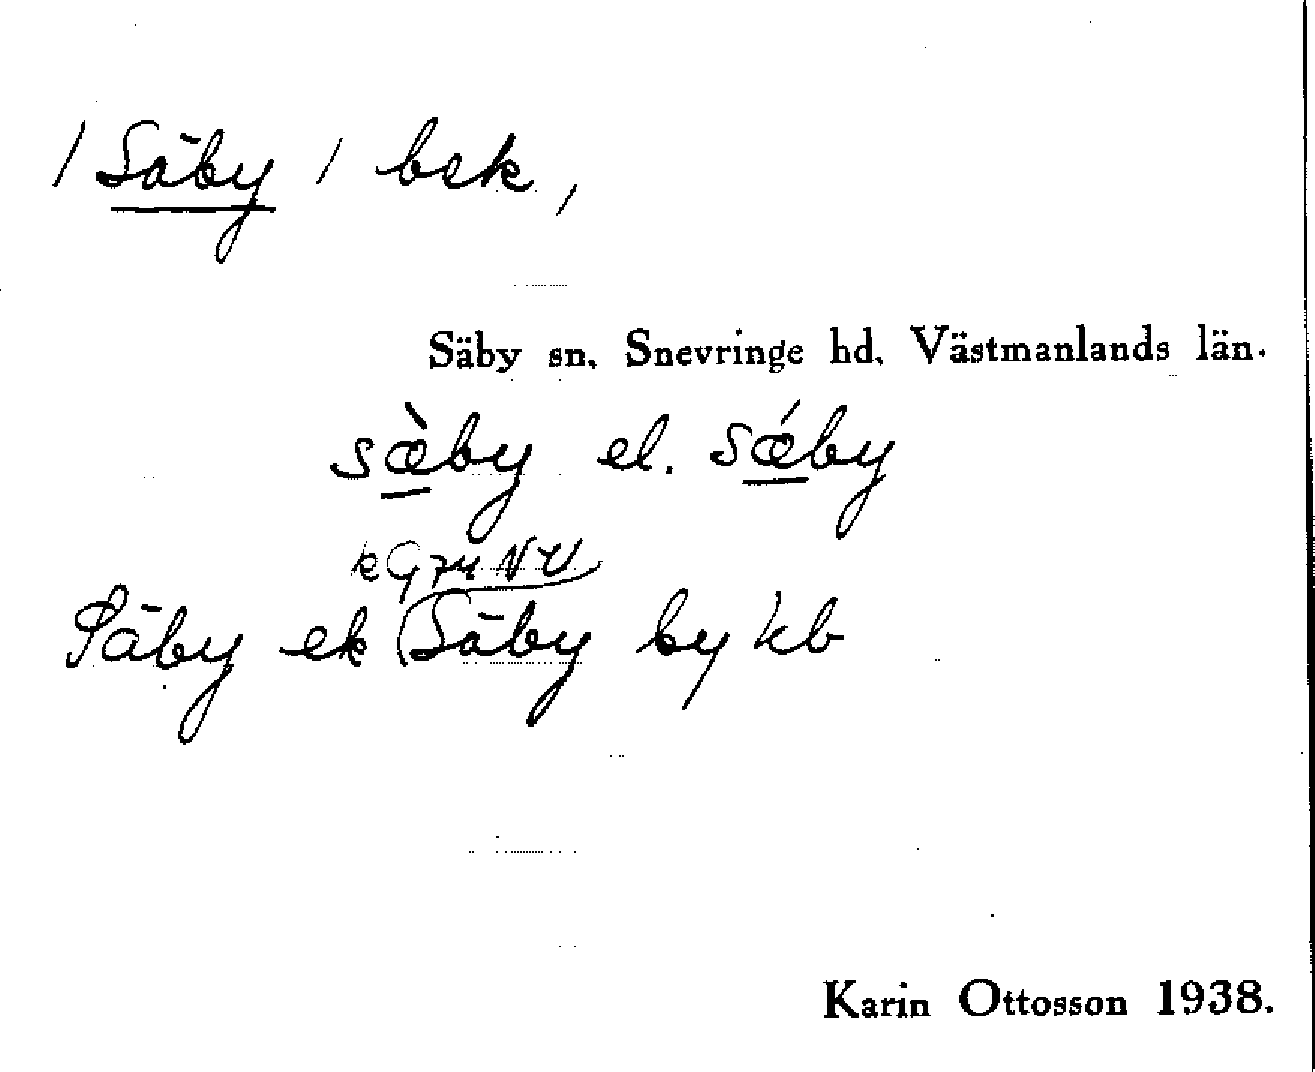 / Säby / bsk,
Säby sn. Snevringe hd. Västmanlands län.
sæ̀by el. sǽby
Säby ek (Säby by kb
Karin Ottosson 1938.